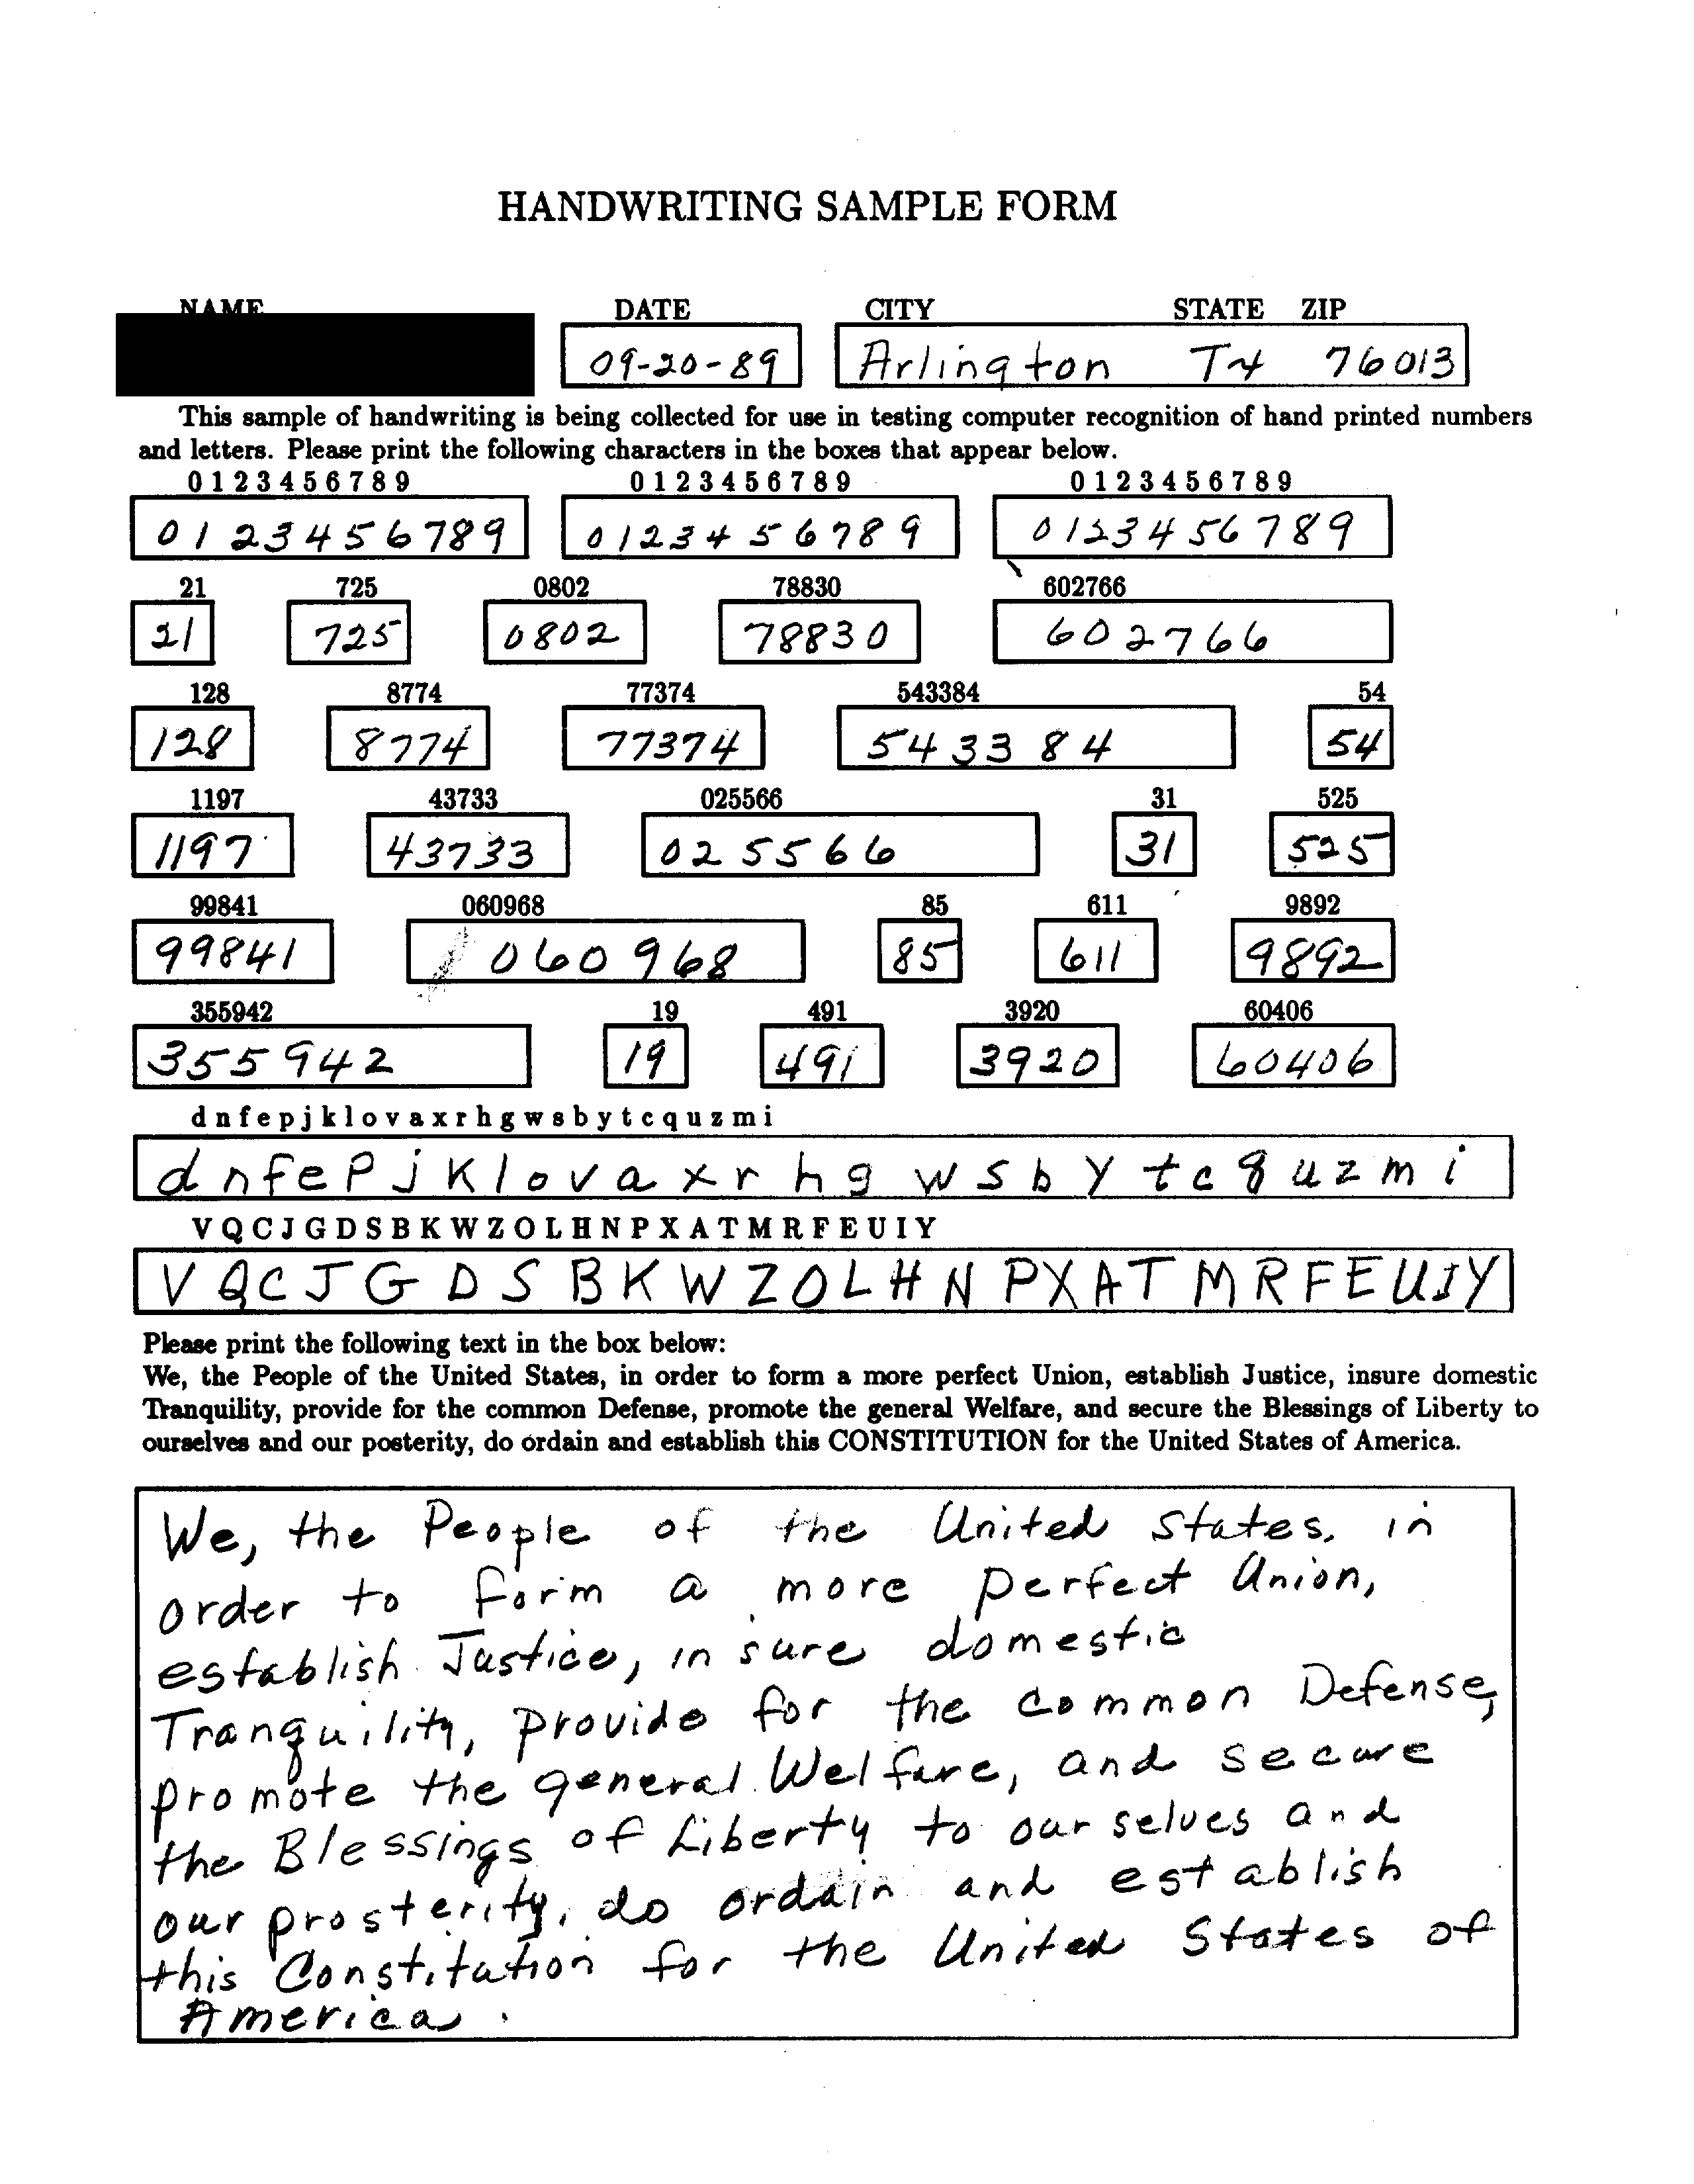 HANDWRITING SAMPLE FORM
NAME DATE CITY STATE ZIP
09-20-89 Arlington TX 76013
This sample of handwriting is being collected for use in testing computer recognition of hand printed numbers
and letters. Please print the following characters in the boxes that appear below.
0 1 2 3 4 5 6 7 8 9 0 1 2 3 4 5 6 7 8 9 0 1 2 3 4 5 6 7 8 9
0 1 2 3 4 5 6 7 8 9 0 1 2 3 4 5 6 7 8 9 0 1 2 3 4 5 6 7 8 9
21 725 0802 78830 602766
21 725 0802 78830 602766
128 8774 77374 543384 54
128 8774 77374 543384 54
1197 43733 025566 31 525
1197 43733 025566 31 525
99841 060968 85 611 9892
99841 060968 85 611 9892
355942 19 491 3920 60406
355942 19 491 3920 60406
d n f e p j k l o v a x r h g w s b y t c q u z m i
d n f e P j K l o v a x r h g w s b y t c q u z m i
V Q C J G D S B K W Z O L H N P X A T M R F E U I Y
V Q C J G D S B K W Z O L H N P X A T M R F E U I Y
Please print the following text in the box below:
We, the People of the United States, in order to form a more perfect Union, establish Justice, insure domestic
Tranquility, provide for the common Defense, promote the general Welfare, and secure the Blessings of Liberty to
ourselves and our posterity, do ordain and establish this CONSTITUTION for the United States of America.
We, the People of the United States, in
order to form a more perfect Union,
establish Justice, insure domestic
Tranquility, provide for the common Defense,
promote the general Welfare, and secure
the Blessings of Liberty to our selves and
our prosterity, do ordain and establish
this Constitution for the United States of
America.